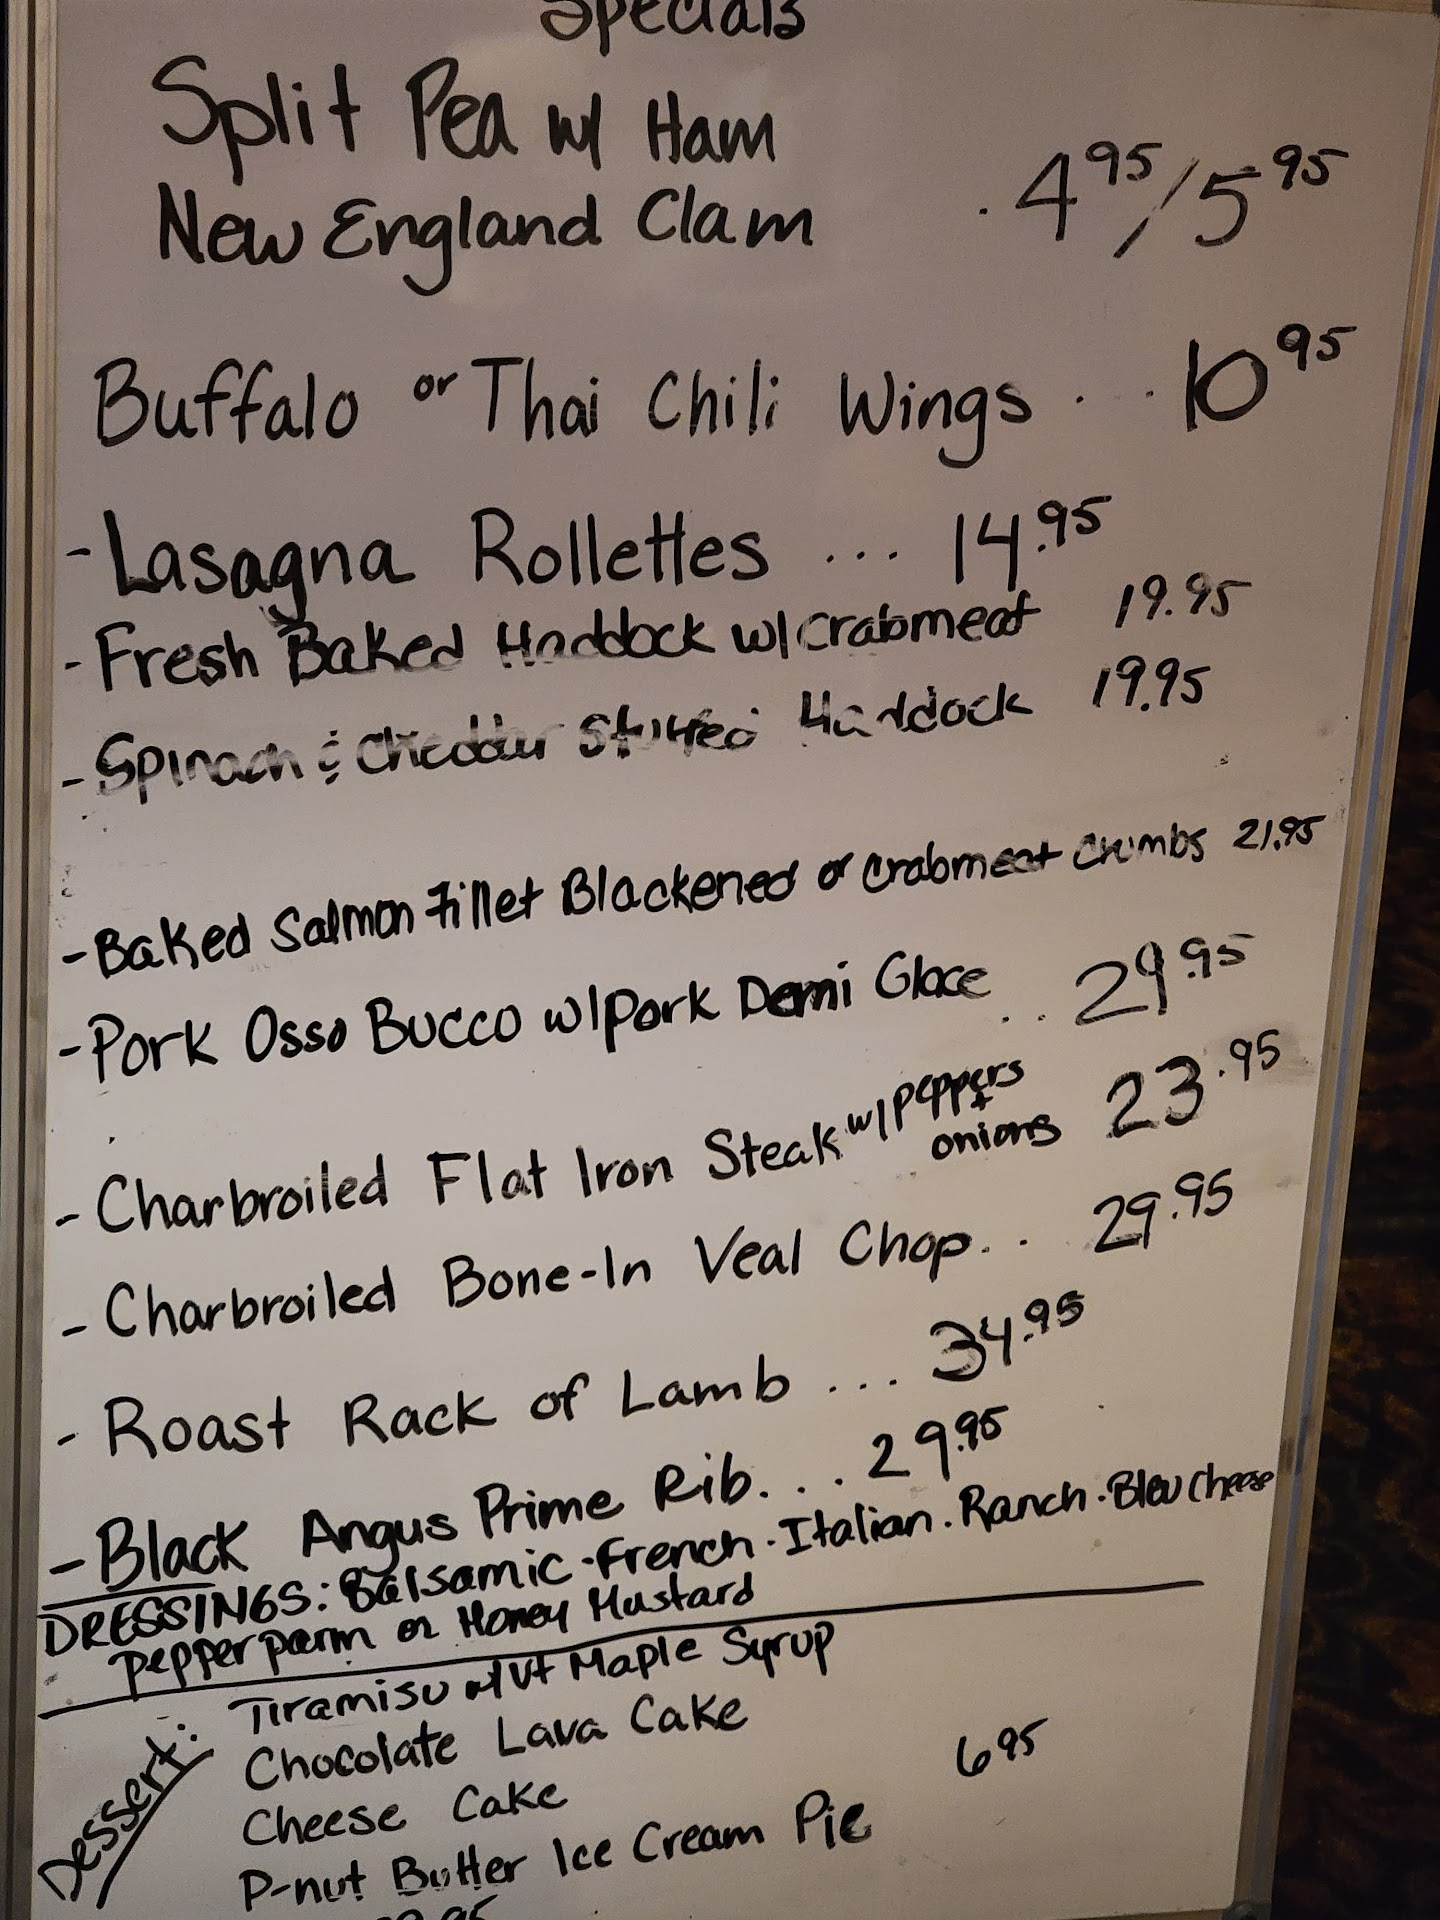 Specials
Split Pea w/ Ham
New England Clam . 4 95/5 95
Buffalo or Thai Chili Wings . . . 10 95
- Lasagna Rollettes ... 14.95
- Fresh Baked Haddock w/ crabmeat 19.95
- Spinach & Cheddar Stuffed Haddock 19.95
- Baked Salmon Fillet Blackened or crabmeat crumbs 21.95
- Pork Osso Bucco w/ Pork Demi Glace .. 29.95
- Charbroiled Flat Iron Steak w/ peppers + onions 23.95
- Charbroiled Bone-In Veal Chop.. . 29.95
- Roast Rack of Lamb ... 34.95
- Black Angus Prime Rib... 29.95
DRESSINGS: Balsamic · French · Italian . Ranch · Bleu Cheese
Pepper parm or Honey Mustard
Dessert: Tiramisu w/ Vt Maple Syrup
Chocolate Lava Cake
Cheese Cake 6 95
P-nut Butter Ice Cream Pie